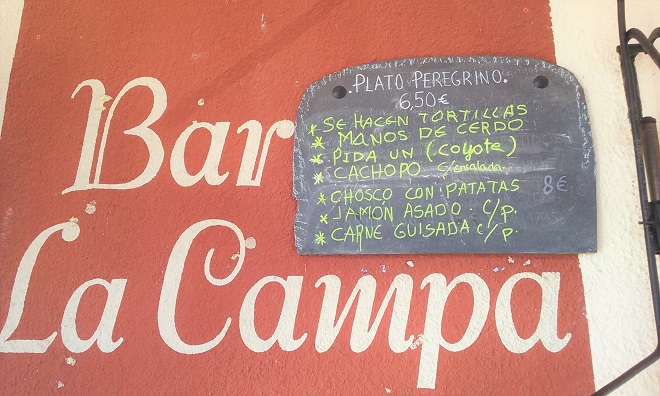 Bar
La Campa
PLATO PEREGRINO.
6,50€
* SE HACEN TORTILLAS
* MANOS DE CERDO
* PIDA UN (COYOTE)
* CACHOPO C/ensalada.
* CHOSCO CON PATATAS 8€
* JAMON ASADO. C/p.
* CARNE GUISADA C/p.